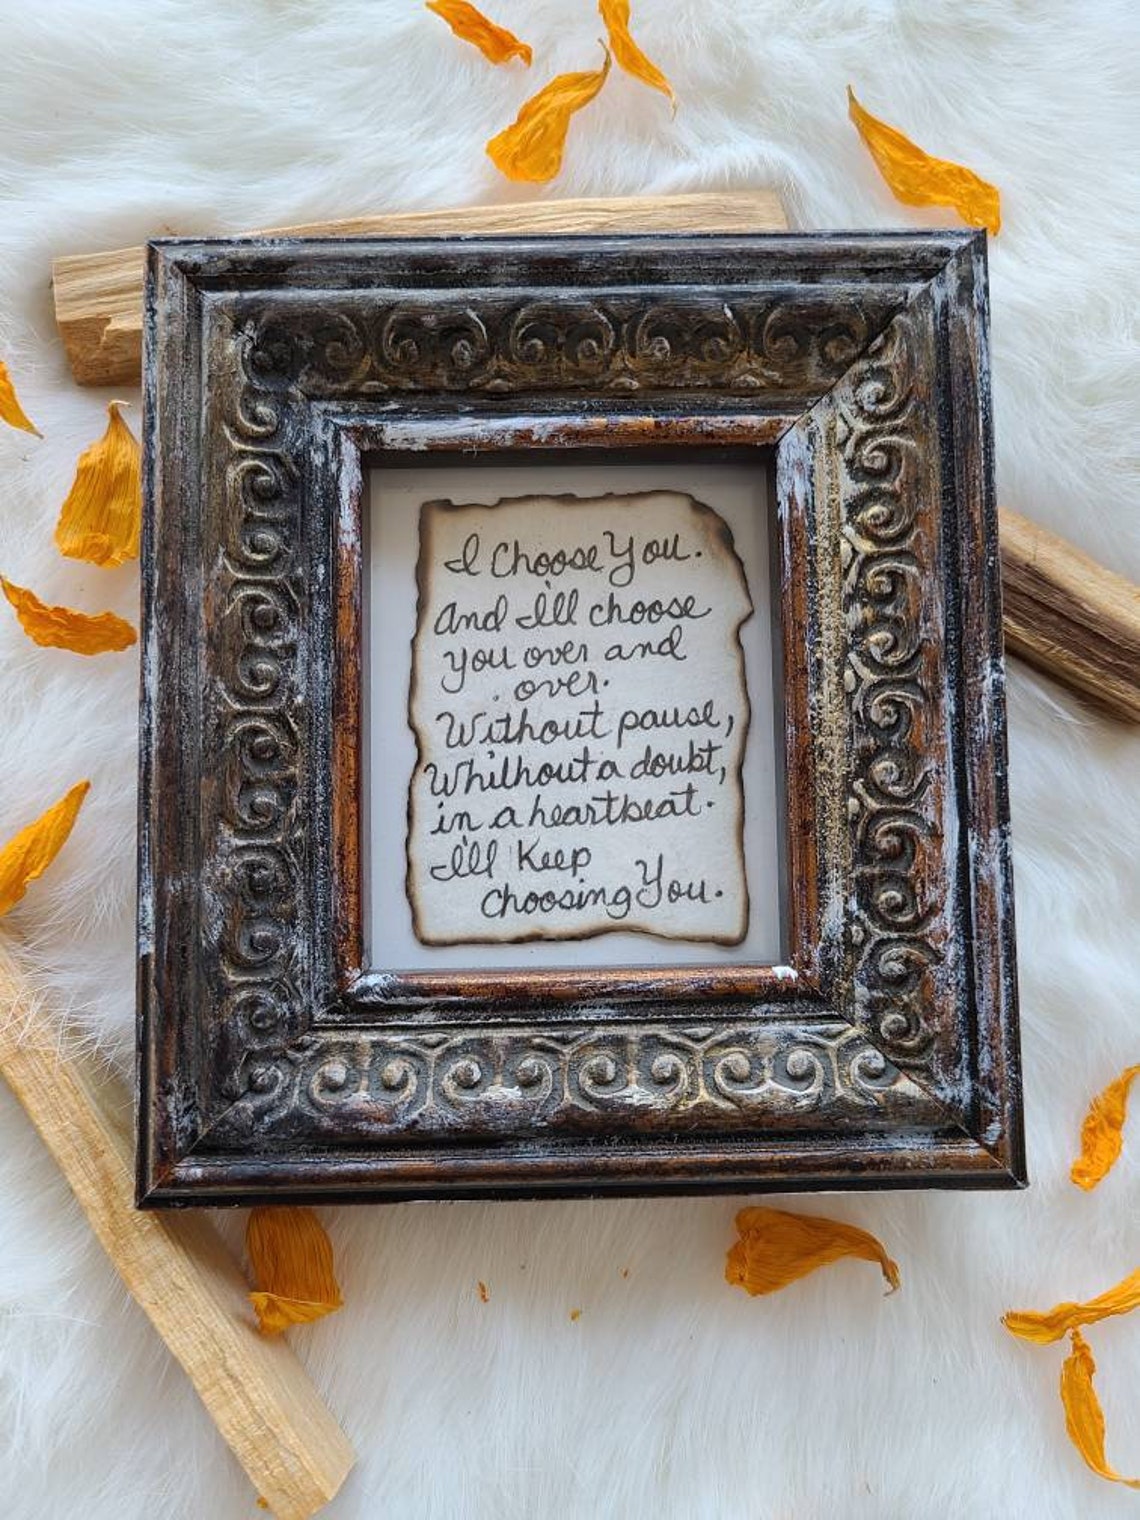 I Choose You.
And I'll choose
you over and
over.
Without pause,
Whilhout a doubt,
in a heartbeat.
I'll Keep
choosing You.